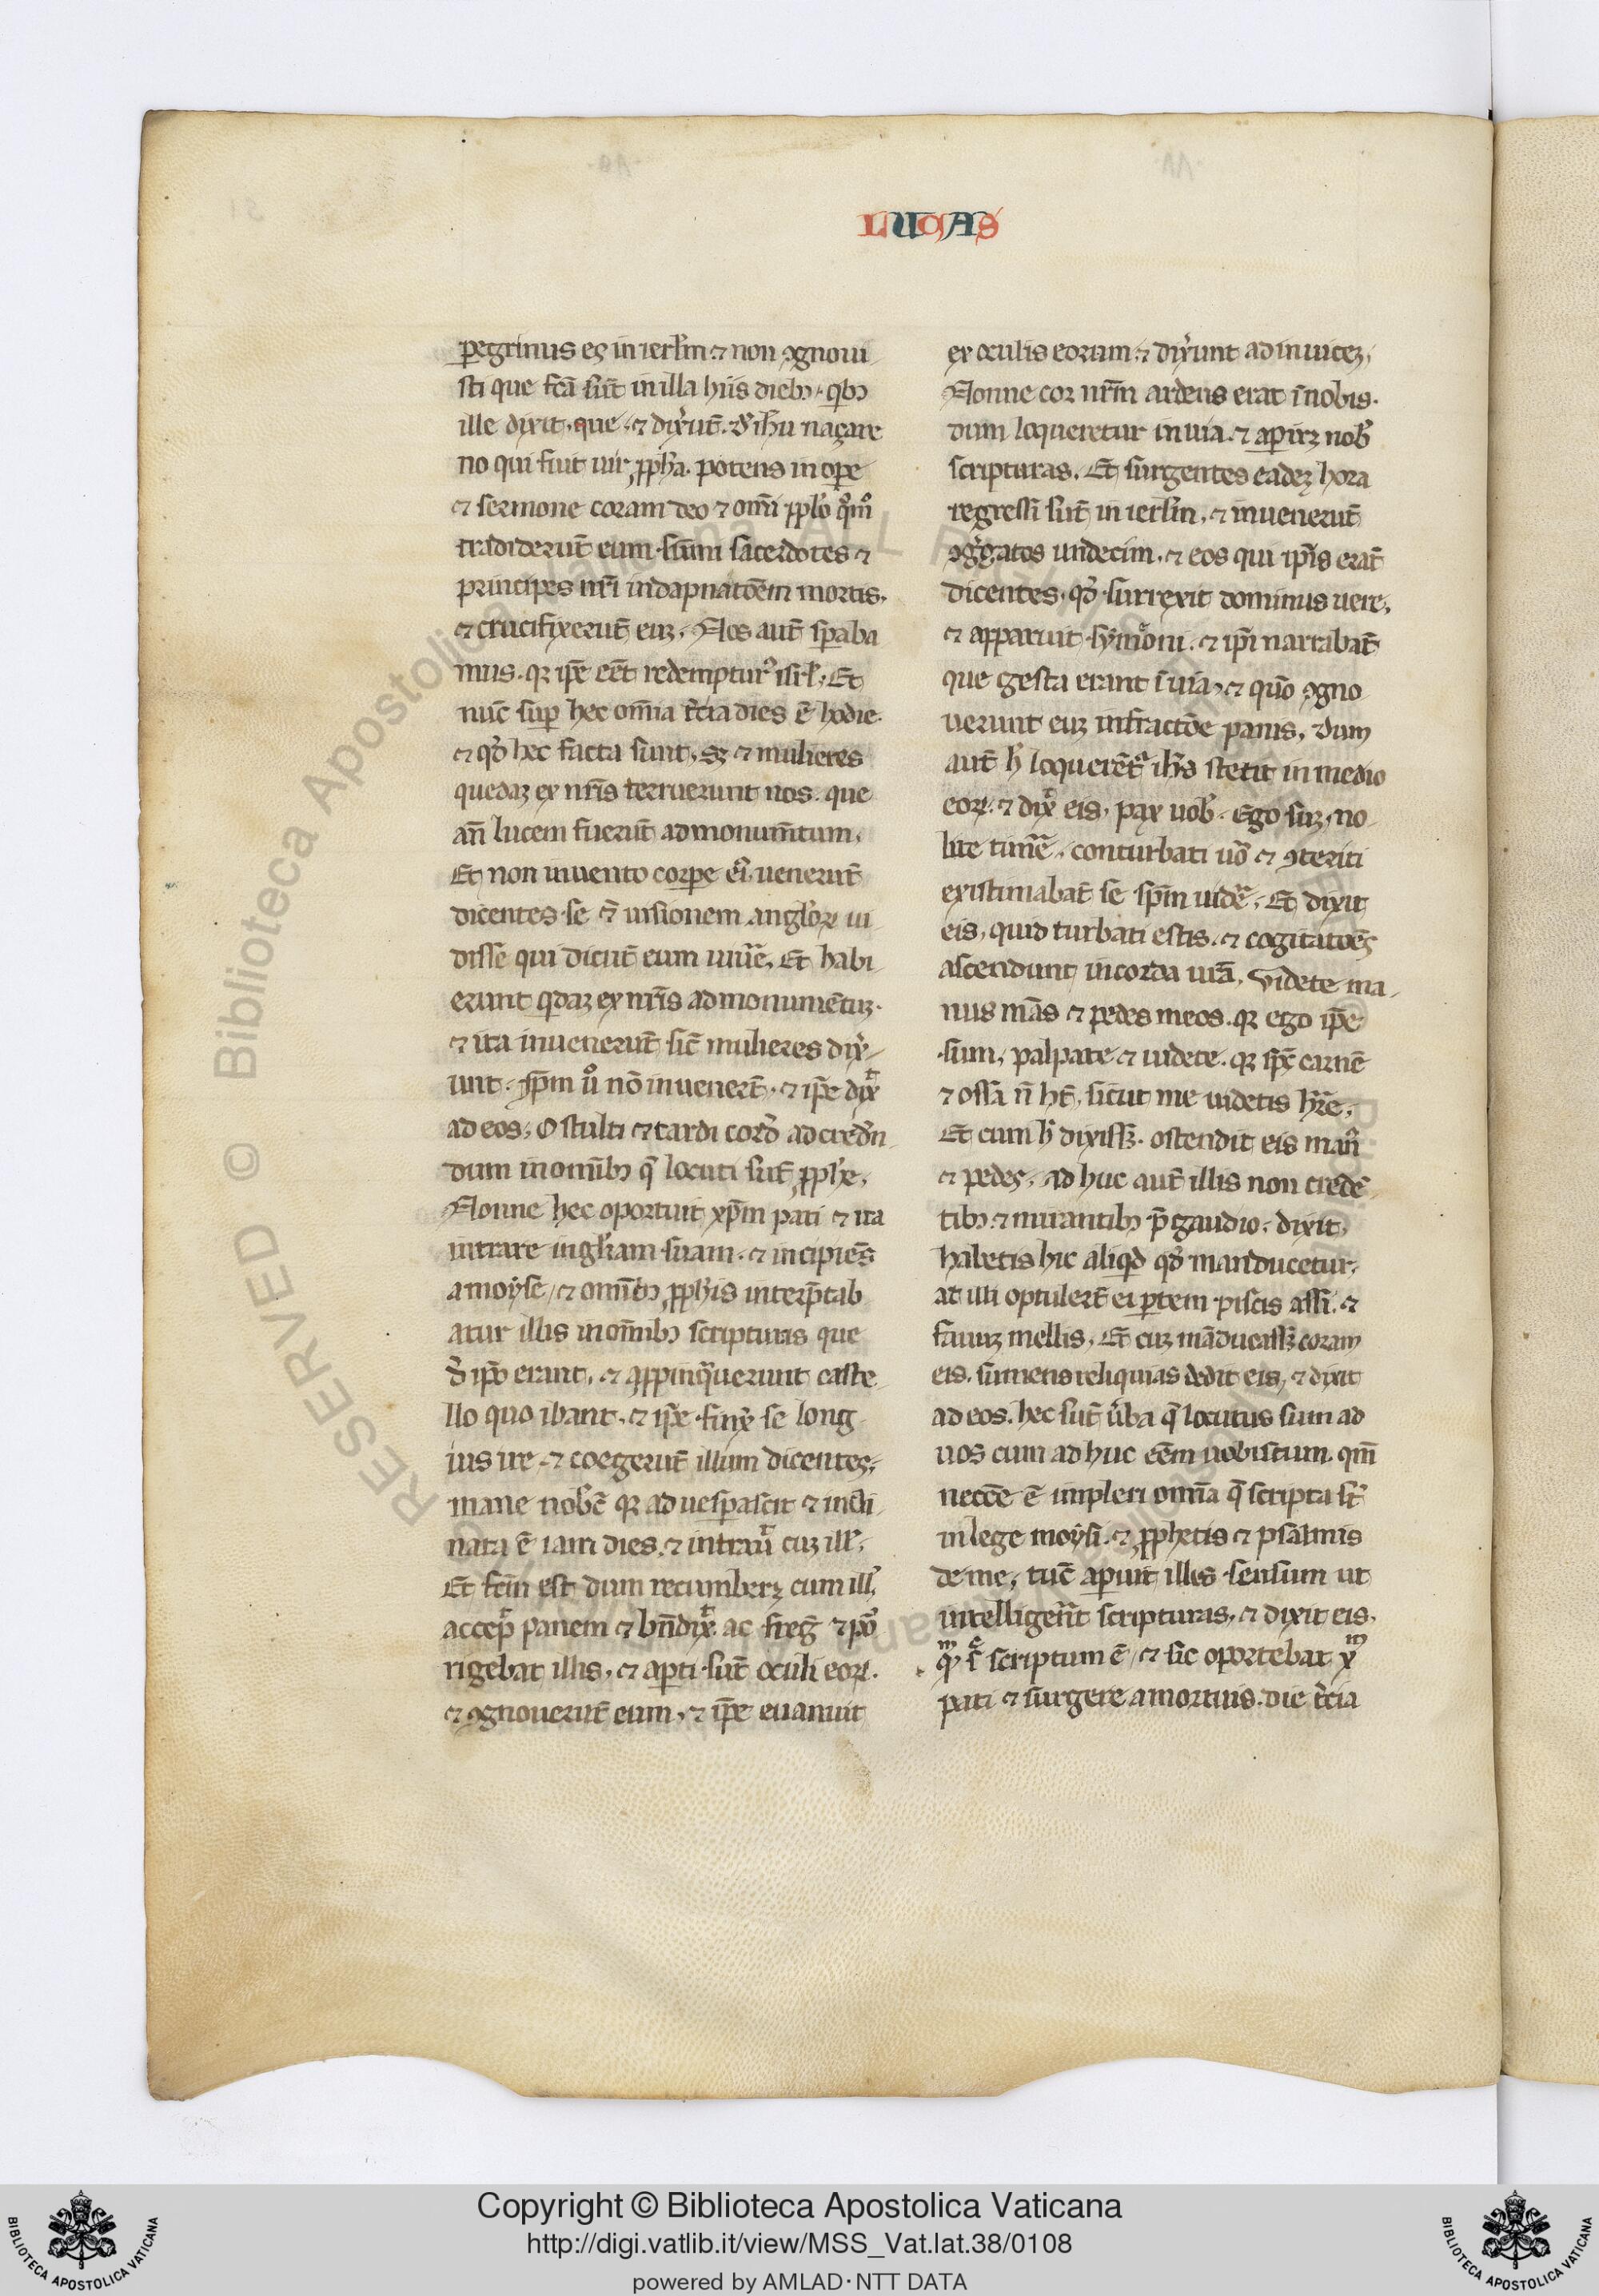 LUCAS
peregrinus es in ierlm̄ ⁊ non ꝯgnoui
sti que fcā sūt in illa hiis dieb; q̇b;
ille dixit. que. ⁊ dixˀūt. d̄ ihū naçare
no qui fuit uir ꝓpħa. potens in oꝑe
⁊ sermone coram deo ⁊ om̄i ppl̄o qͦmͦ
tradiderūt eum sūmi sacerdotes ⁊
principes nr̄i in dapnatōem mortis.
⁊ crucifixerūt euꝫ. Nos aut̄ sꝑaba
mus. qꝛ ip̄e eēt redempturꝰ isrl̄. Et
nūc suꝑ hec om̄ia t̄cia dies ē hodie.
⁊ qđ hec facta sunt. sꝫ ⁊ mulieres
quedaꝫ ex nr̄is terruerunt nos. que
an̄ lucem fuerūt ad monum̄tum.
Et non inuento corꝑe eiꝰ uenerūt
dicentes se ēt̄ uisionem angl̄oꝝ ui
disse qui dicūt eum uiuē. Et habi
erunt qdaꝫ ex nr̄is ad monumētuꝫ.
⁊ ita inuenerūt sic̄ mulieres dixˀ
unt. ip̄m uͦ nō inuenert̄. ⁊ ip̄e dixᵗ
ad eos. O stulti ⁊ tardi cord̓ ad cred̓n
dum in omīb; q̄ locuti sūt ꝓph̄e.
Nonne hec oportuit xp̄m pati ⁊ ita
intrare in gl̄iam suam. ⁊ incipiēs
a moyse. ⁊ omīb; ꝓph̄is interp̄tab
atur illis in om̄ib; scripturis que
d̄ ipō erant. ⁊ appinq̇uerunt caste
llo quo ibant. ⁊ ip̄e finxᵗ se long
ius ire ⁊ coegerūt illum dicentes.
mane nob̄c̄ qꝛ aduesꝑascit ⁊ incli
nata ē iam dies. ⁊ intrauᵗ cuꝫ illˀ.
Et fc̄m est dum recumberꝫ cum illˀ
accepᵗ panem ⁊ bn̄dixᵗ ac freg̓ ⁊ poʳ
rigebat illis. ⁊ aꝑti sūt oculi eoꝝ.
⁊ ꝯgnouerūt eum. ⁊ ip̄e euanuit
ex oculis eorum. ⁊ dixˀunt ad inuiceꝫ.
Nonne cor nr̄m ardens erat ī nobis.
dum loqueretur in uia. ⁊ aꝑirꝫ nob̓
scripturas. Et surgentes eadeꝫ hora
regressi sūt in ierl̄m. ⁊ inuenerūt
ꝯg̓gatos undecim. ⁊ eos qui ip̄is erāt
dicentes. qđ surrexit dominus uere.
⁊ apparuit symoni. ⁊ ip̄i narrabāt
que gesta erant ī uia. ⁊ quō ꝯgno
uerunt euꝫ in fractōe panis. dum
aut̄ h̓ loquerēt̓ ih̄s stetit in medio
eoꝝ. ⁊ dixᵗ eis. pax uob̓. Ego suꝫ. no
lite timē̄. conturbati uͦ ⁊ ꝯteriti
existimabāt se sp̄m uidē̄. Et dixit
eis. quid turbati estis. ⁊ cogitatōes
ascendunt in corda urā. Videte ma
nus mās ⁊ pedes meos. qꝛ ego ip̄e
sum. palpate ⁊ uidete. qꝛ sp̄c carnē
⁊ ossa n̄ ht̄. sicut me uidetis hr̄e.
Et cum h̓ dixissꝫ. ostendit eis man̓
⁊ pedes. ad huc aut̄ illis non credē
tib; ⁊ mirantib; p̄ gaudio. dixit.
habetis hic aliqd̓ qđ manducetur.
at illi optulert̄ ei ꝑtem piscis assi. ⁊
fauuꝫ mellis. Et cuꝫ māducassꝫ coram
eis. sumens reliquias dedit eis. ⁊ dixit
ad eos. hec sūt ūba q̄ locutus sum ad
uos cum ad huc eēm uobiscum. qm̄
necēe ē impleri om̄ia q̄ scripta st̄
in lege moysi. ⁊ ꝓphetis ⁊ psalmis
de me. tūc aꝑuit illis sensum ut
intelligeīnt scripturas. ⁊ dixit eis.
qᵐ sͨ scriptum ē. ⁊ sic oportebat xᵐ
pati ⁊ surgere a mortuis. die t̄cia
Copyright © Biblioteca Apostolica Vaticana
http://digi.vatlib.it/view/MSS_Vat.lat.38/0108
powered by AMLAD·NTT DATA
BIBLIOTECA APOSTOLICA VATICANA
BIBLIOTECA APOSTOLICA VATICANA